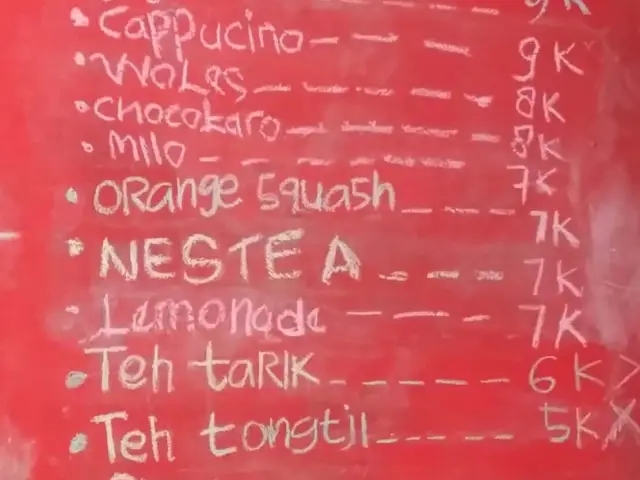 9K
• Cappucino — — — 9K
• WOLES — — — — 8K
• CHOCOKARO — — — — 8K
• MILO — — — — 7K
• ORange SquaSh — — — 7K
• NESTEA — — — — 7K
- Lemonade — — — 7K
• Teh taRIK - — — — — 6K
• Teh tongtjI - — — — — 5K